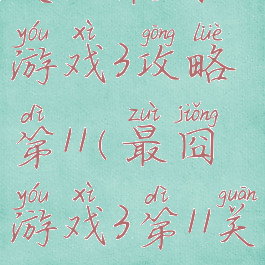 yóu xì gōng lüè
游戏3攻略
dì zuì jiǒng
第11(最囧
yóu xì dì guān
游戏3第11关